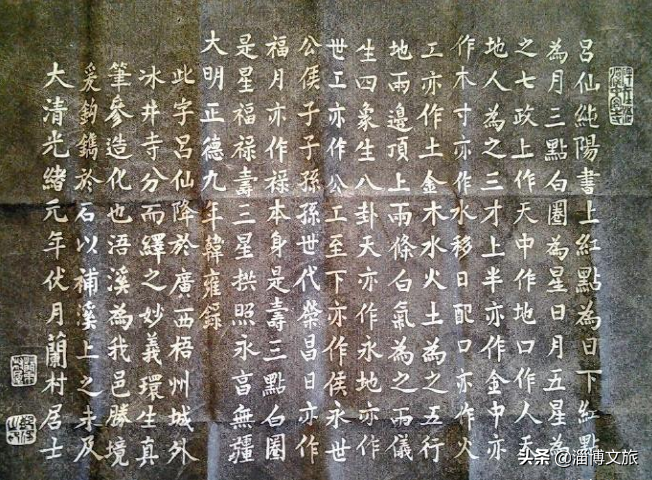 呂仙純陽書上紅點為日下紅點
為月三點白圈為星日月五星為
之七政上作天中作地口作人天
地人為之三才上半亦作金中亦
作木寸亦作水移日配口亦作火
工亦作土金木水火土為之五行
地兩邊頂上兩條白氣為之兩儀
生四象生八卦天亦作永地亦作
世工亦作公工至下亦作侯永世
公侯子子孫孫世代榮昌日亦作
福月亦作祿本身是壽三點白圈
是星福祿壽三星拱照永享無疆
大明正德九年韓雍錄
此字呂仙降於廣西梧州城外
冰井寺分而繹之妙義環生真
筆參造化也浯溪為我邑勝境
爰鉤鐫於石以補溪上之未及
大清光緒元年伏月蘭村居士
头条 @淄博文旅